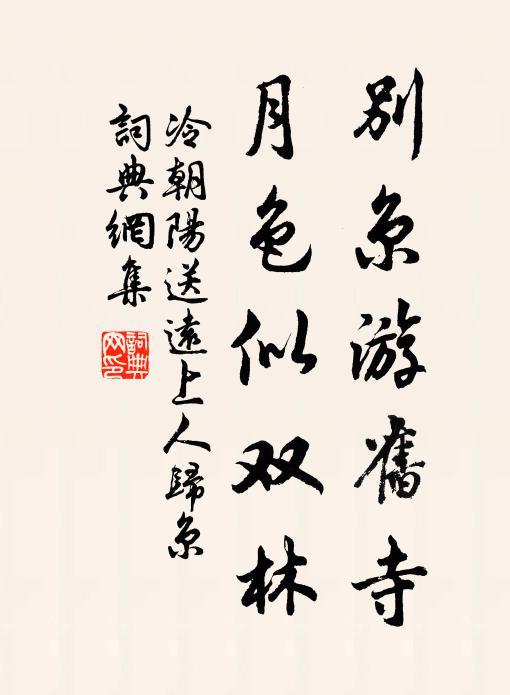 別京游舊寺
月色似双林
冷朝陽送遠上人歸京
詞典網集
詞典
网印